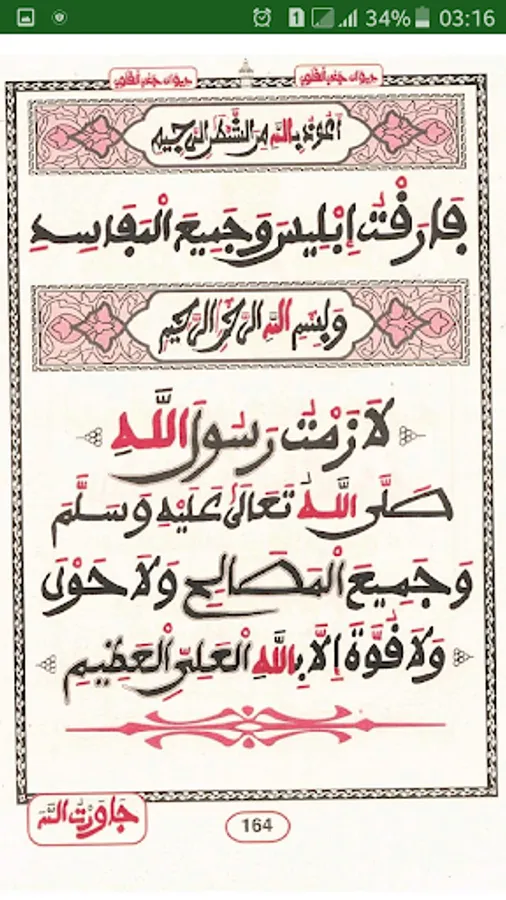 34% 03:16
أعوذ بالله من الشيطان الرجيم
فارقت إبليس وجميع المفاسد
وبسم الله الرحمن الرحيم
لازمت رسول الله
صلى الله تعالى عليه وسلم
وجميع المصالح ولا حول
ولا قوة إلا بالله العلي العظيم
جاورت الله
164